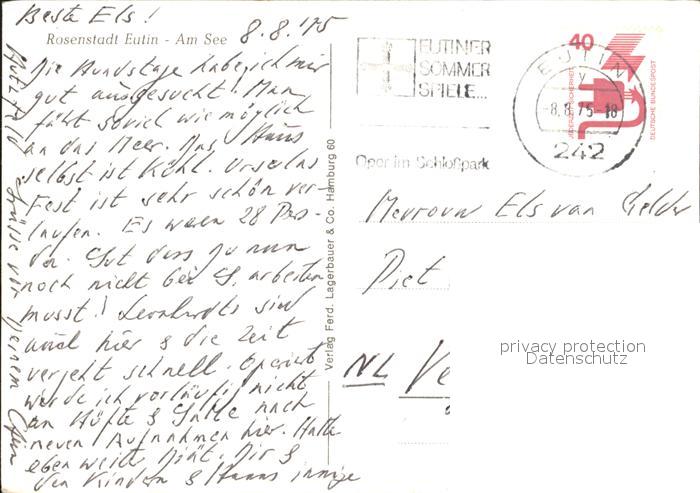 Beste Els!
Rosenstadt Eutin - Am See 8.8.'75
Die Hundstage habe ich mir
gut ausgesucht! Man
fährt soviel wie möglich
an das Meer. Das Haus
selbst ist kühl. Ursulas
Fest ist sehr schön ver-
laufen. Es waren 28 Pers-
Gut dass Du nun
noch nicht bei G. arbeiten
musst! Leonhardts sind
auch hier & die Zeit
vergeht schnell. Operiert
werde ich vorläufig nicht
an Hüfte & Galle nach
neuen Aufnahmen hier. Halte
eben weiter Diät. Dir &
den Kindern & Hanns innige
Grüsse von Deinem
Verlag Ferd. Lagerbauer & Co. Hamburg 60
EUTINER
SOMMER
SPIELE...
Oper im Schloßpark
EUTIN
-8.8.75-18
242
40
JEDERZEIT SICHERHEIT
DEUTSCHE BUNDESPOST
Mevrouw Els van Gelder
Piet
NL Ve
privacy protection
Datenschutz